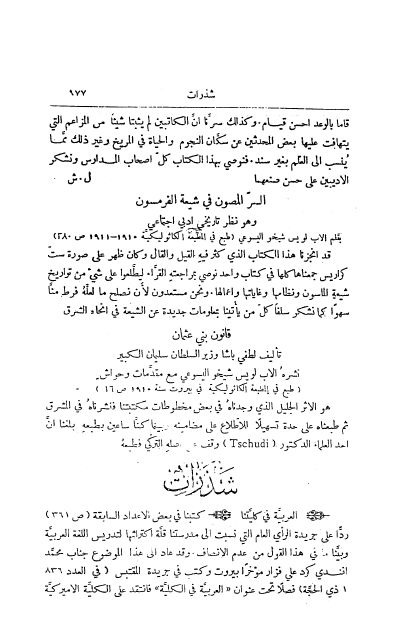 شذرات ٩٧٧
قاما بالوعد احسن قيام. وكذلك سرَّنا انَّ الكاتبين لم يثبتا شيئًا من المزاعم التي
يتهافت عليها بعض المحدثين عن سكَّان النجوم والحياة في المريخ وغير ذلك ممَّا
يُنسب الى العلم بغير سند. فنوصي بهذا الكتاب كلّ اصحاب المدارس ونشكر
الاديبين على حسن صنعهما ل.ش
السرّ المصون في شيعة الفرمسون
وهو نظر تاريخي ادبي اجتماعي
بقلم الاب لويس شيخو اليسوعي (طبع في المطبعة الكاثوليكيَّة ١٩١٠-١٩١١ ص ٣٨٠)
قد انجزنا هذا الكتاب الذي كثر فيهِ القيل والقال وكان ظهر على صورة ستّ
كراريس جمعناها كلها في كتاب واحد نوصي بمراجعتهِ القرَّاء ليطَّلعوا على شيء من تواريخ
شيعة الماسون ونظامها وغاياتها واعمالها. ونحن مستعدون لأن نصلح ما لعلَّهُ فرط منَّا
سهوًا كما نشكر سلفًا كلّ من يأتينا بمعلومات جديدة عن الشيعة في انحاء الشرق
قانون بني عثمان
تأليف لطفي باشا وزير السلطان سليمان الكبير
نشرهُ الاب لويس شيخو اليسوعي مع مقدّمات وحواشٍ
(طبع في المطبعة الكاثوليكية في بيروت سنة ١٩١٠ ص ٤٦)
هو الاثر الجليل الذي وجدناهُ في بعض مخطوطات مكتبتنا فنشرناهُ في المشرق
ثم طبعناه على حدة تسهيلًا للاطلاع على مضامينهِ وبينما كنَّا ساعين بطبعهِ بلغنا انَّ
احد العلماء الدكتور (Tschudi) وقف على اصلهِ التركي فطبعهُ
شذرات
العربية في كليّتنا كتبنا في بعض الاعداد السابقة (ص ٣٦١)
ردًّا على جريدة الرأي العام التي نسبت الى مدرستنا قلَّة اكتراثها لتدريس اللغة العربية
وبيَّنَّا ما في هذا القول من عدم الانصاف. وقد عاد الى هذا الموضوع جناب محمَّد
افندي كرد علي فزار مؤخَّرًا بيروت وكتب في جريدة المقتبس (في العدد ٨٣٦
١ ذي الحجَّة) فصلًا تحت عنوان «العربية في الكلية» فانتقد على الكلية الاميركية